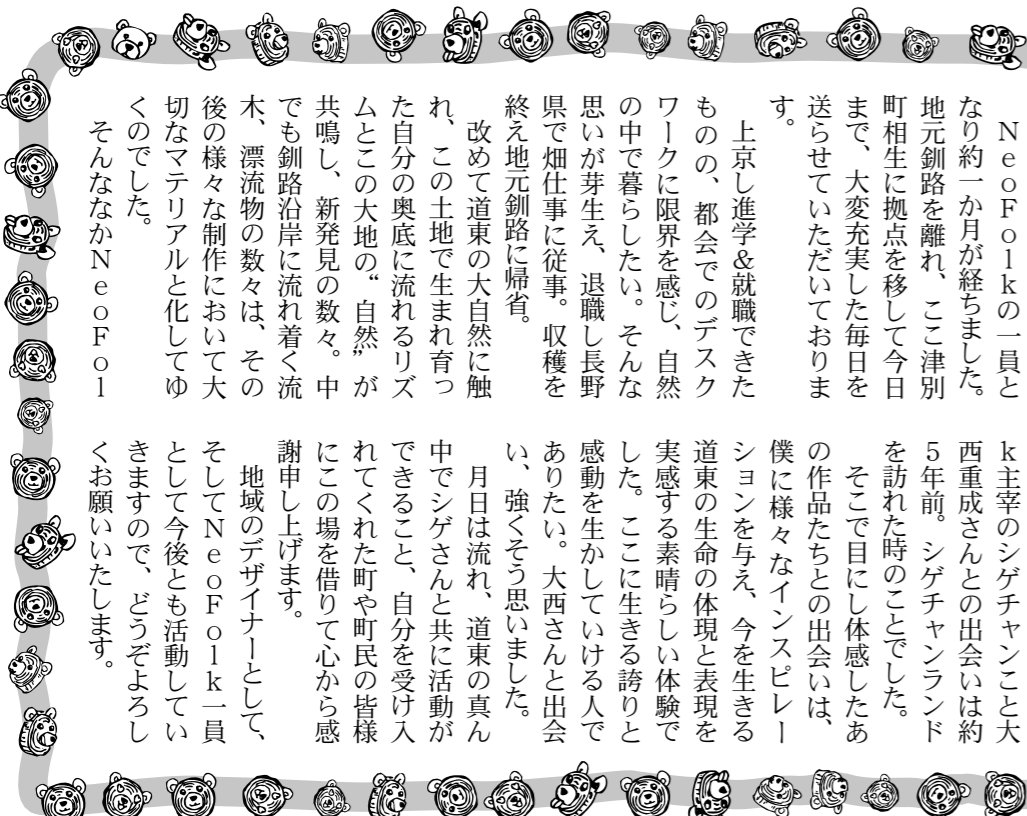 NeoFolkの一員と
なり約一か月が経ちました。
地元釧路を離れ、ここ津別
町相生に拠点を移して今日
まで、大変充実した毎日を
送らせていただいておりま
す。
上京し進学&就職できた
ものの、都会でのデスク
ワークに限界を感じ、自然
の中で暮らしたい。そんな
思いが芽生え、退職し長野
県で畑仕事に従事。収穫を
終え地元釧路に帰省。
改めて道東の大自然に触
れ、この土地で生まれ育っ
た自分の奥底に流れるリズ
ムとこの大地の“自然”が
共鳴し、新発見の数々。中
でも釧路沿岸に流れ着く流
木、漂流物の数々は、その
後の様々な制作において大
切なマテリアルと化してゆ
くのでした。
そんななかNeoFol
k主宰のシゲチャンこと大
西重成さんとの出会いは約
5年前。シゲチャンランド
を訪れた時のことでした。
そこで目にし体感したあ
の作品たちとの出会いは、
僕に様々なインスピレー
ションを与え、今を生きる
道東の生命の体現と表現を
実感する素晴らしい体験で
した。ここに生きる誇りと
感動を生かしていける人で
ありたい。大西さんと出会
い、強くそう思いました。
月日は流れ、道東の真ん
中でシゲさんと共に活動が
できること、自分を受け入
れてくれた町や町民の皆様
にこの場を借りて心から感
謝申し上げます。
地域のデザイナーとして、
そしてNeoFolk一員
として今後とも活動してい
きますので、どうぞよろし
くお願いいたします。